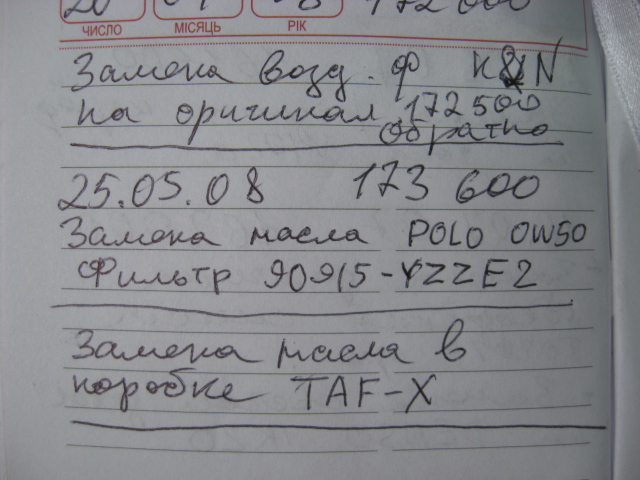 20
ЧИСЛО МІСЯЦЬ РІК
Замена возд. ф K&N
на оригинал 172 500
обратно
25.05.08 173 600
Замена масла POLO 0W50
Фильтр 90915-YZZE2
Замена масла в
коробке TAF-X